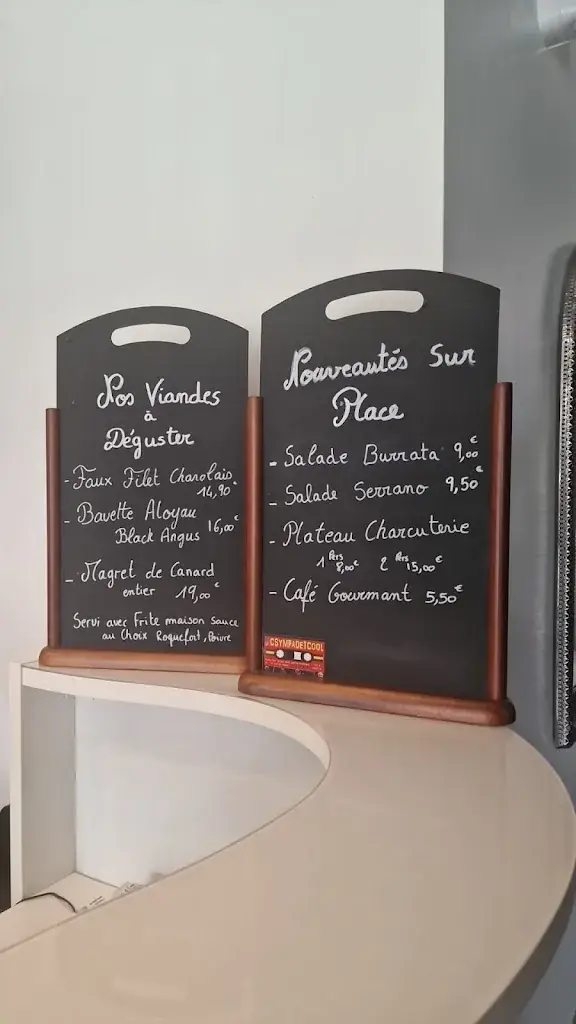 Nos Viandes
à
Déguster
- Faux Filet Charolais.
14,90
- Bavette Aloyau
Black Angus 16,00€
- Magret de Canard
entier 19,00€
Servi avec Frite maison sauce
au Choix Roquefort, Poivre
Nouveautés Sur
Place
- Salade Burrata 9,00€
- Salade Serrano 9,50€
- Plateau Charcuterie
1 Pers 8,00€ 2 Pers 15,00€
- Café Gourmant 5,50€
CSYMPADETCOOL